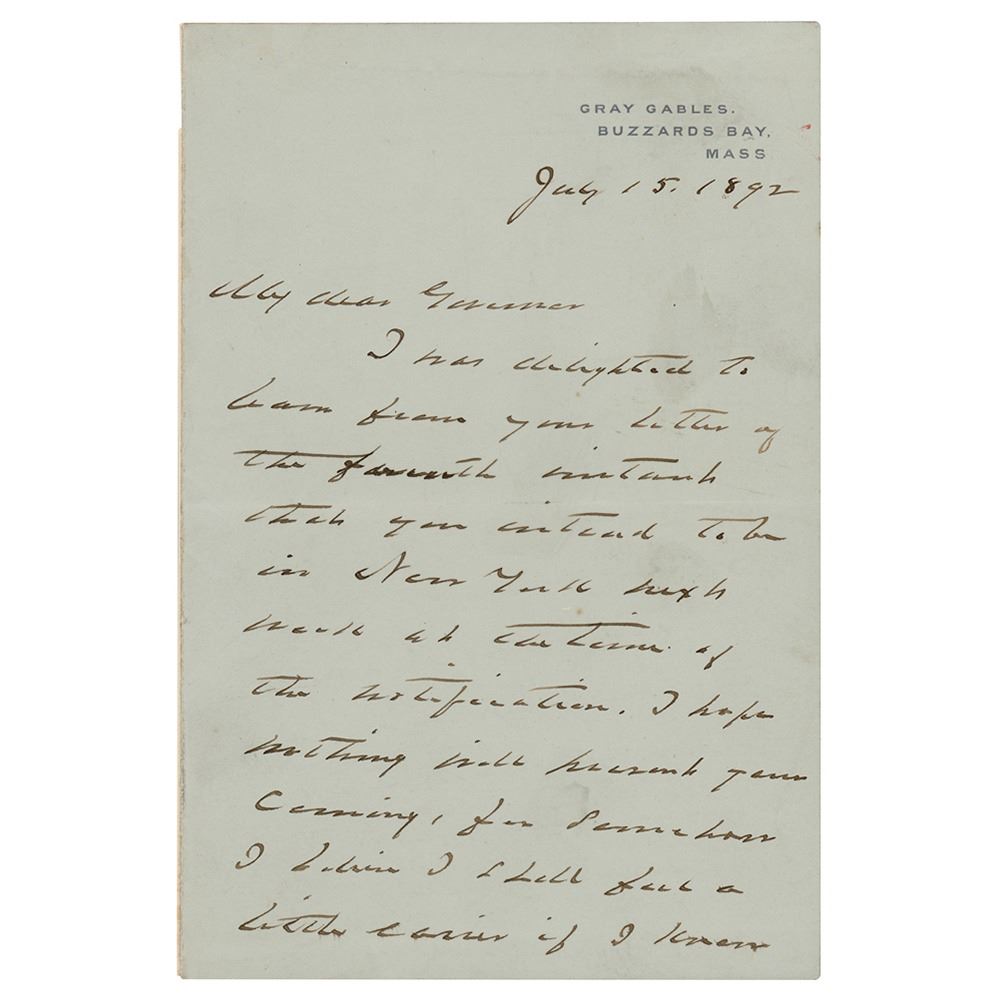 GRAY GABLES.
BUZZARDS BAY,
MASS
July 15. 1892
My dear Governor
I was delighted to
learn from your letter of
the fourth instant
that you intend to be
in New York next
week at the time of
the notification. I hope
nothing will prevent your
coming, for somehow
I believe I shall feel a
little easier if I knew